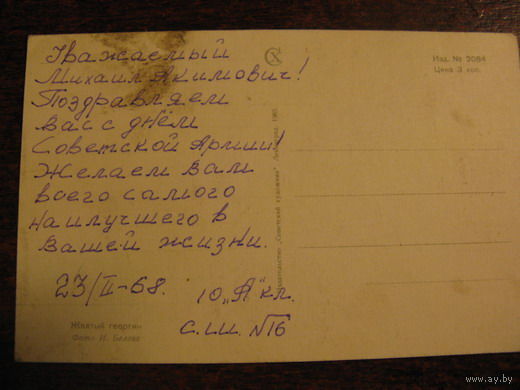 Уважаемый
Михаил Якимович!
Поздравляем
вас с днём
Советской Армии!
Желаем вам
всего самого
наилучшего в
вашей жизни.
23/II-68.
10 „А" кл.
с.ш. №16
Жёлтый георгин
Фото И. Белова
Издательство „Советский художник"
Изд. № 2084
Цена 3 коп.
www.ay.by